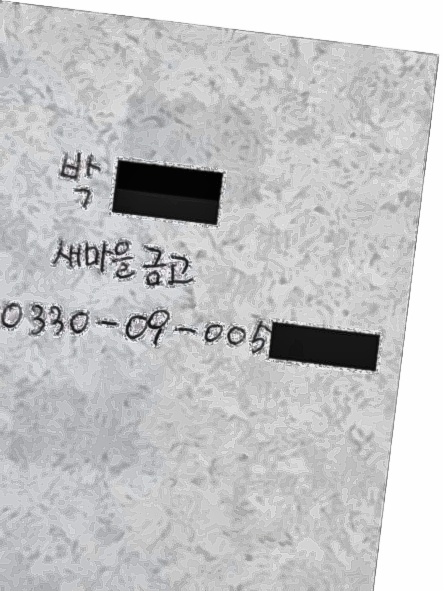 박
새마을금고
0330-09-005